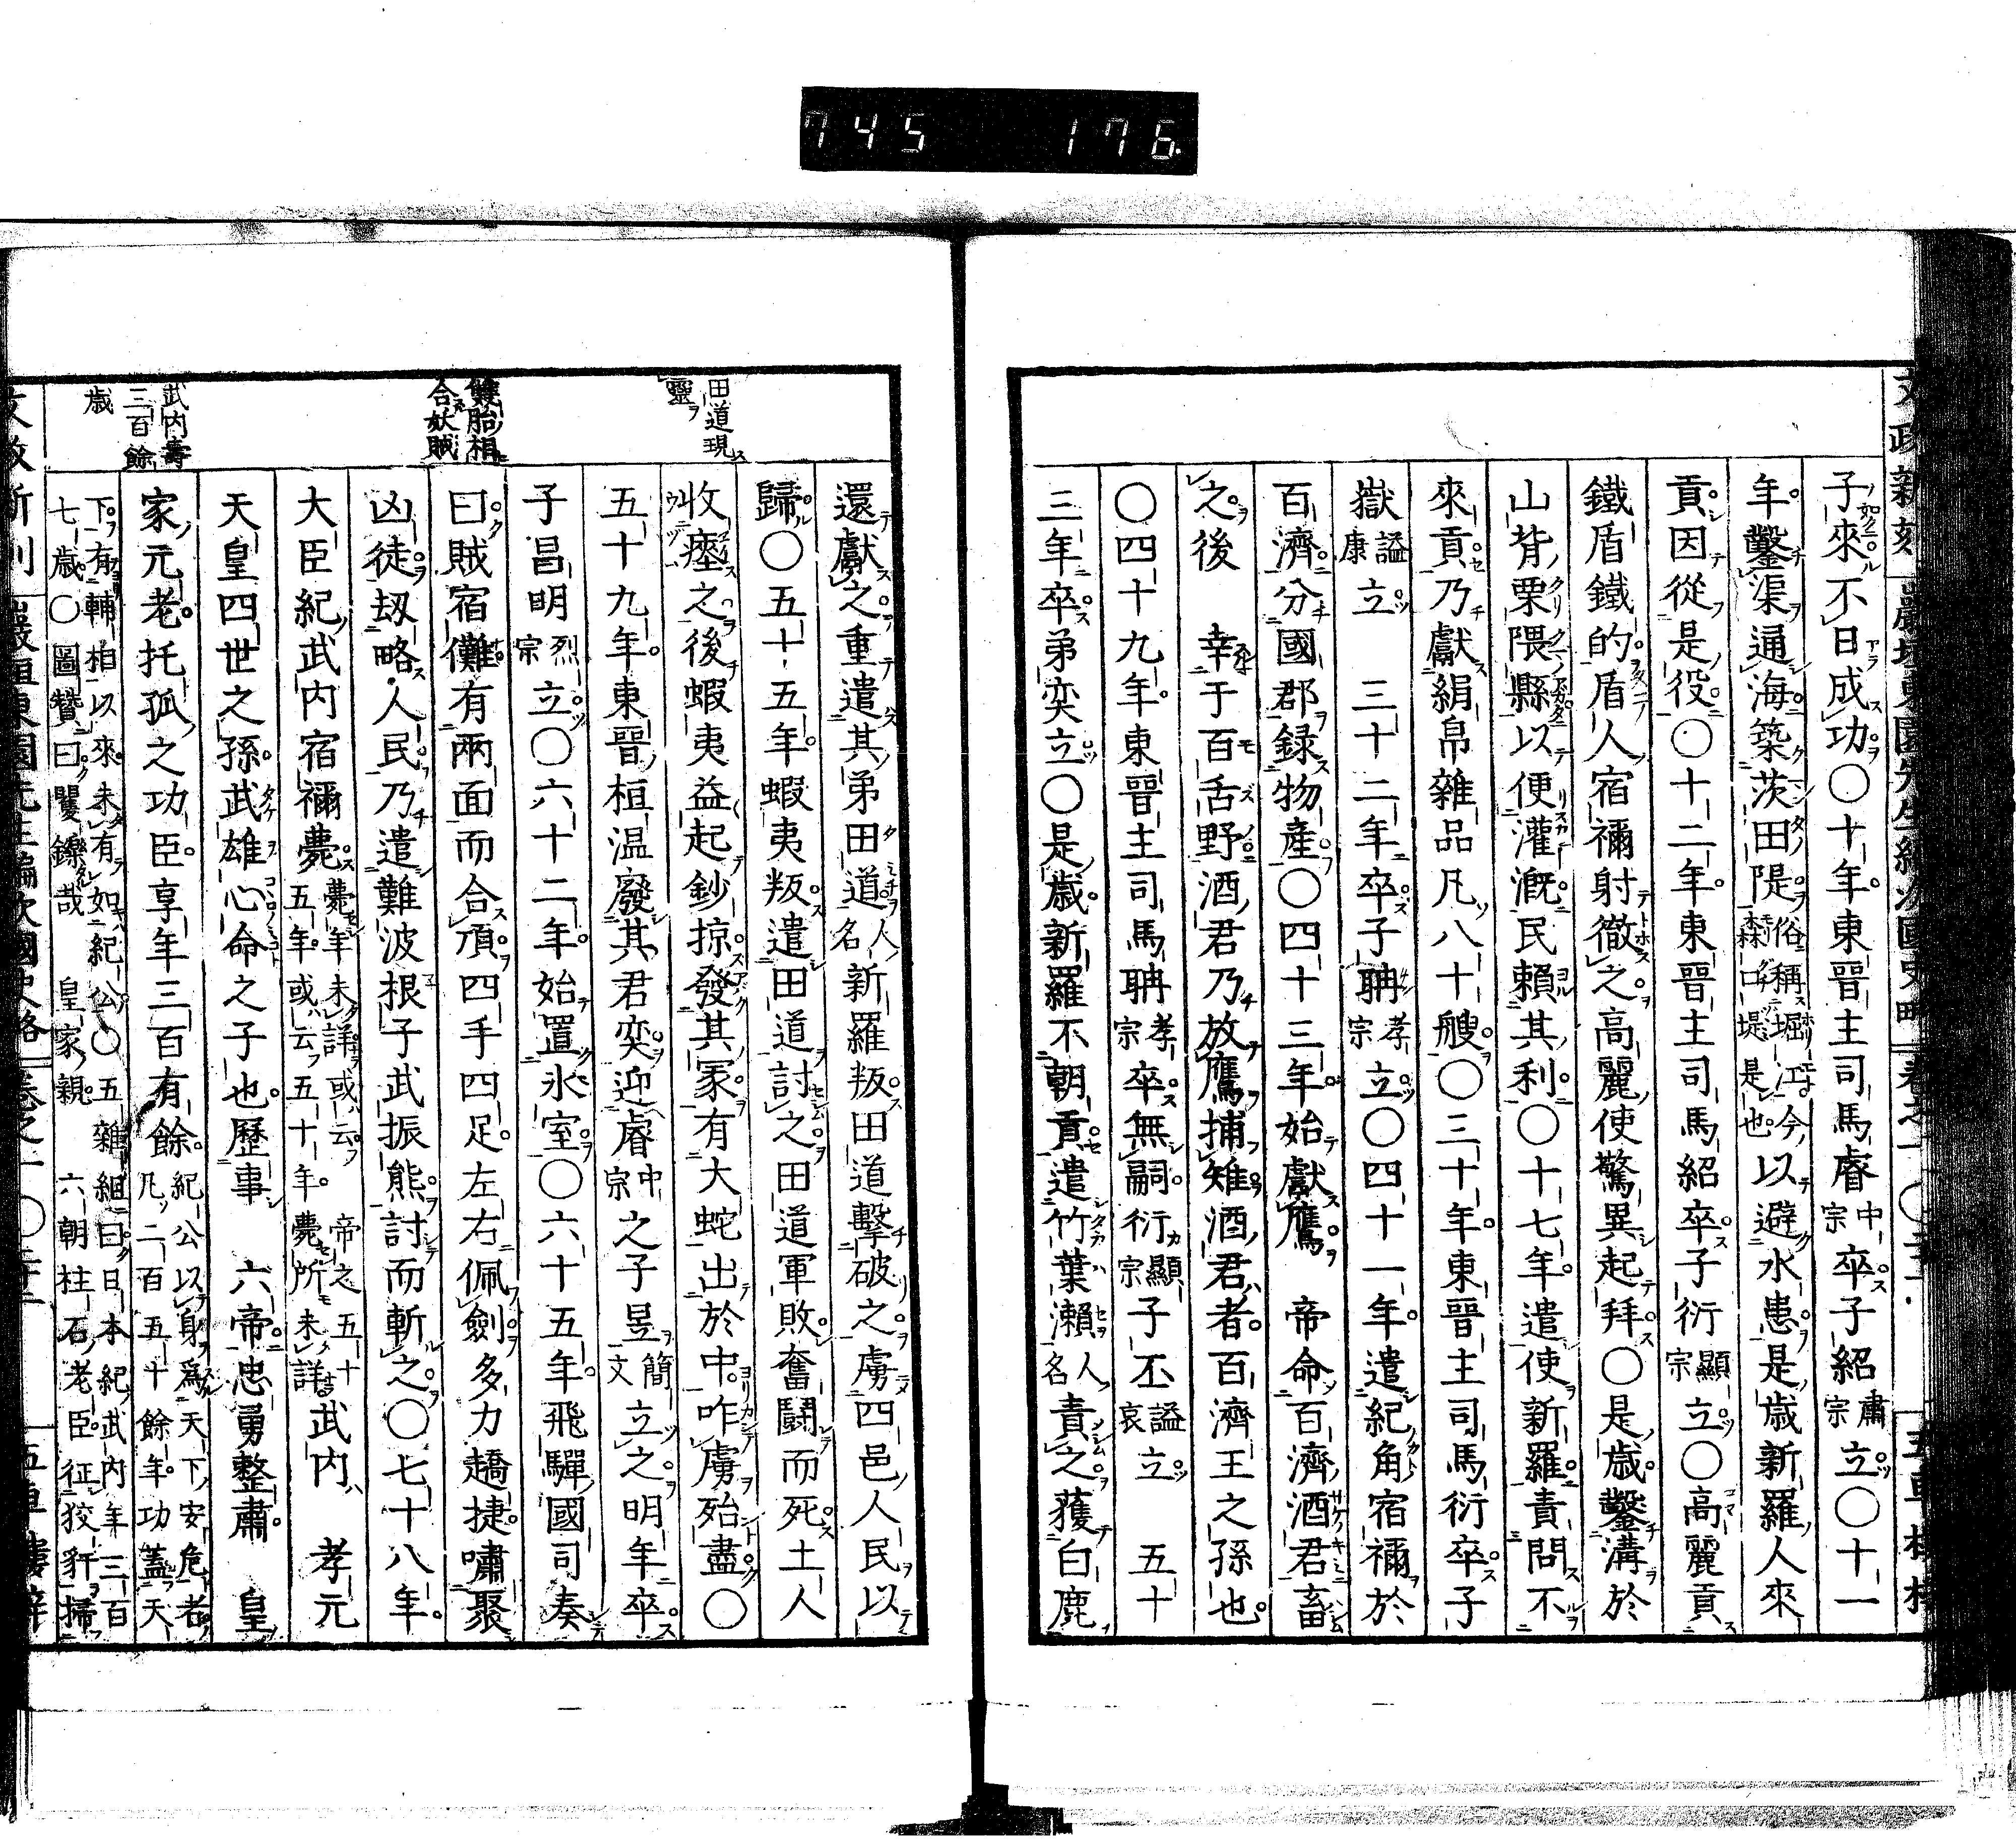 745 176.
子來不日成功〇十年東晉主司馬睿中宗卒子紹肅宗立〇十一
年鑿渠通海築茨田隄俗稱堀江今森口堤是也以避水患是歳新羅人來
貢因從是役〇十二年東晉主司馬紹卒子衍顯宗立〇高麗貢
鐵盾鐵的盾人宿禰射徹之高麗使驚異起拜〇是歳鑿溝於
山背栗隈縣以便灌漑民賴其利〇十七年遣使新羅責問不
來貢乃獻絹帛雜品凡八十艘〇三十年東晉主司馬衍卒子
嶽謚康立　三十二年卒子聃孝宗立〇四十一年遣紀角宿禰於
百濟分國郡録物產〇四十三年始獻鷹　帝命百濟酒君畜
之後　幸于百舌野酒君乃放鷹捕雉酒君者百濟王之孫也
〇四十九年東晉主司馬聃孝宗卒無嗣衍顯宗子丕謚哀立　五十
三年卒弟奕立〇是歳新羅不朝貢遣竹葉瀨人名責之獲白鹿
田道現
靈
還獻之重遣其弟田道人名新羅叛田道擊破之虜四邑人民以
歸〇五十五年蝦夷叛遣田道討之田道軍敗奮鬪而死土人
收瘞之後蝦夷益起鈔掠發其冢有大蛇出於中咋虜殆盡〇
五十九年東晉桓温廢其君奕迎睿中宗之子昱簡文立之明年卒
子昌明烈宗立〇六十二年始置氷室〇六十五年飛驒國司奏
雙胎相
合妖賊
曰賊宿儺有兩面而合頂四手四足左右佩劍多力趫捷嘯聚
凶徒刼略人民乃遣難波根子武振熊討而斬之〇七十八年
大臣紀武内宿禰薨薨年未詳或云帝之五十五年或云五十年薨所未詳武内　孝元
天皇四世之孫武雄心命之子也歷事　六帝忠勇整肅　皇
武内壽
三百餘
歳
家元老托孤之功臣享年三百有餘紀公以身爲天下安危者凡二百五十餘年功蓋天
下有輔相以來未有如紀公〇五雜組曰日本紀武内年三百
七歳〇圖贊曰矍鑠哉　皇家親　六朝柱石老臣征狡豻掃